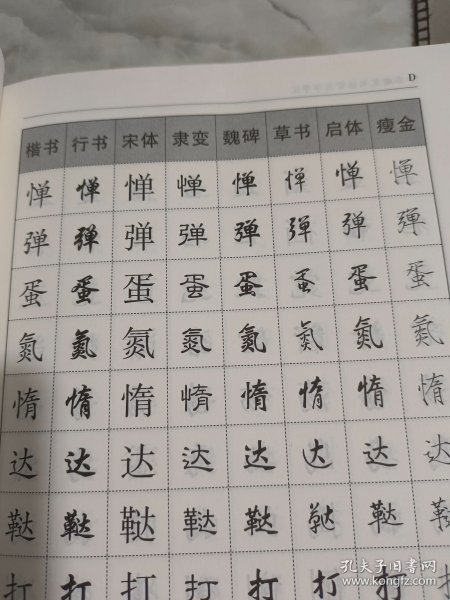 D
楷书 行书 宋体 隶变 魏碑 草书 启体 瘦金
惮 惮 惮 惮 惮 惮 惮 惮
弹 弹 弹 弹 弹 弹 弹 弹
蛋 蛋 蛋 蛋 蛋 蛋 蛋 蛋
氮 氮 氮 氮 氮 氮 氮 氮
惰 惰 惰 惰 惰 惰 惰 惰
达 达 达 达 达 达 达 达
鞑 鞑 鞑 鞑 鞑 鞑 鞑 鞑
打 打 打 打 打 打 打 打
孔夫子旧书网
www.kongfz.com